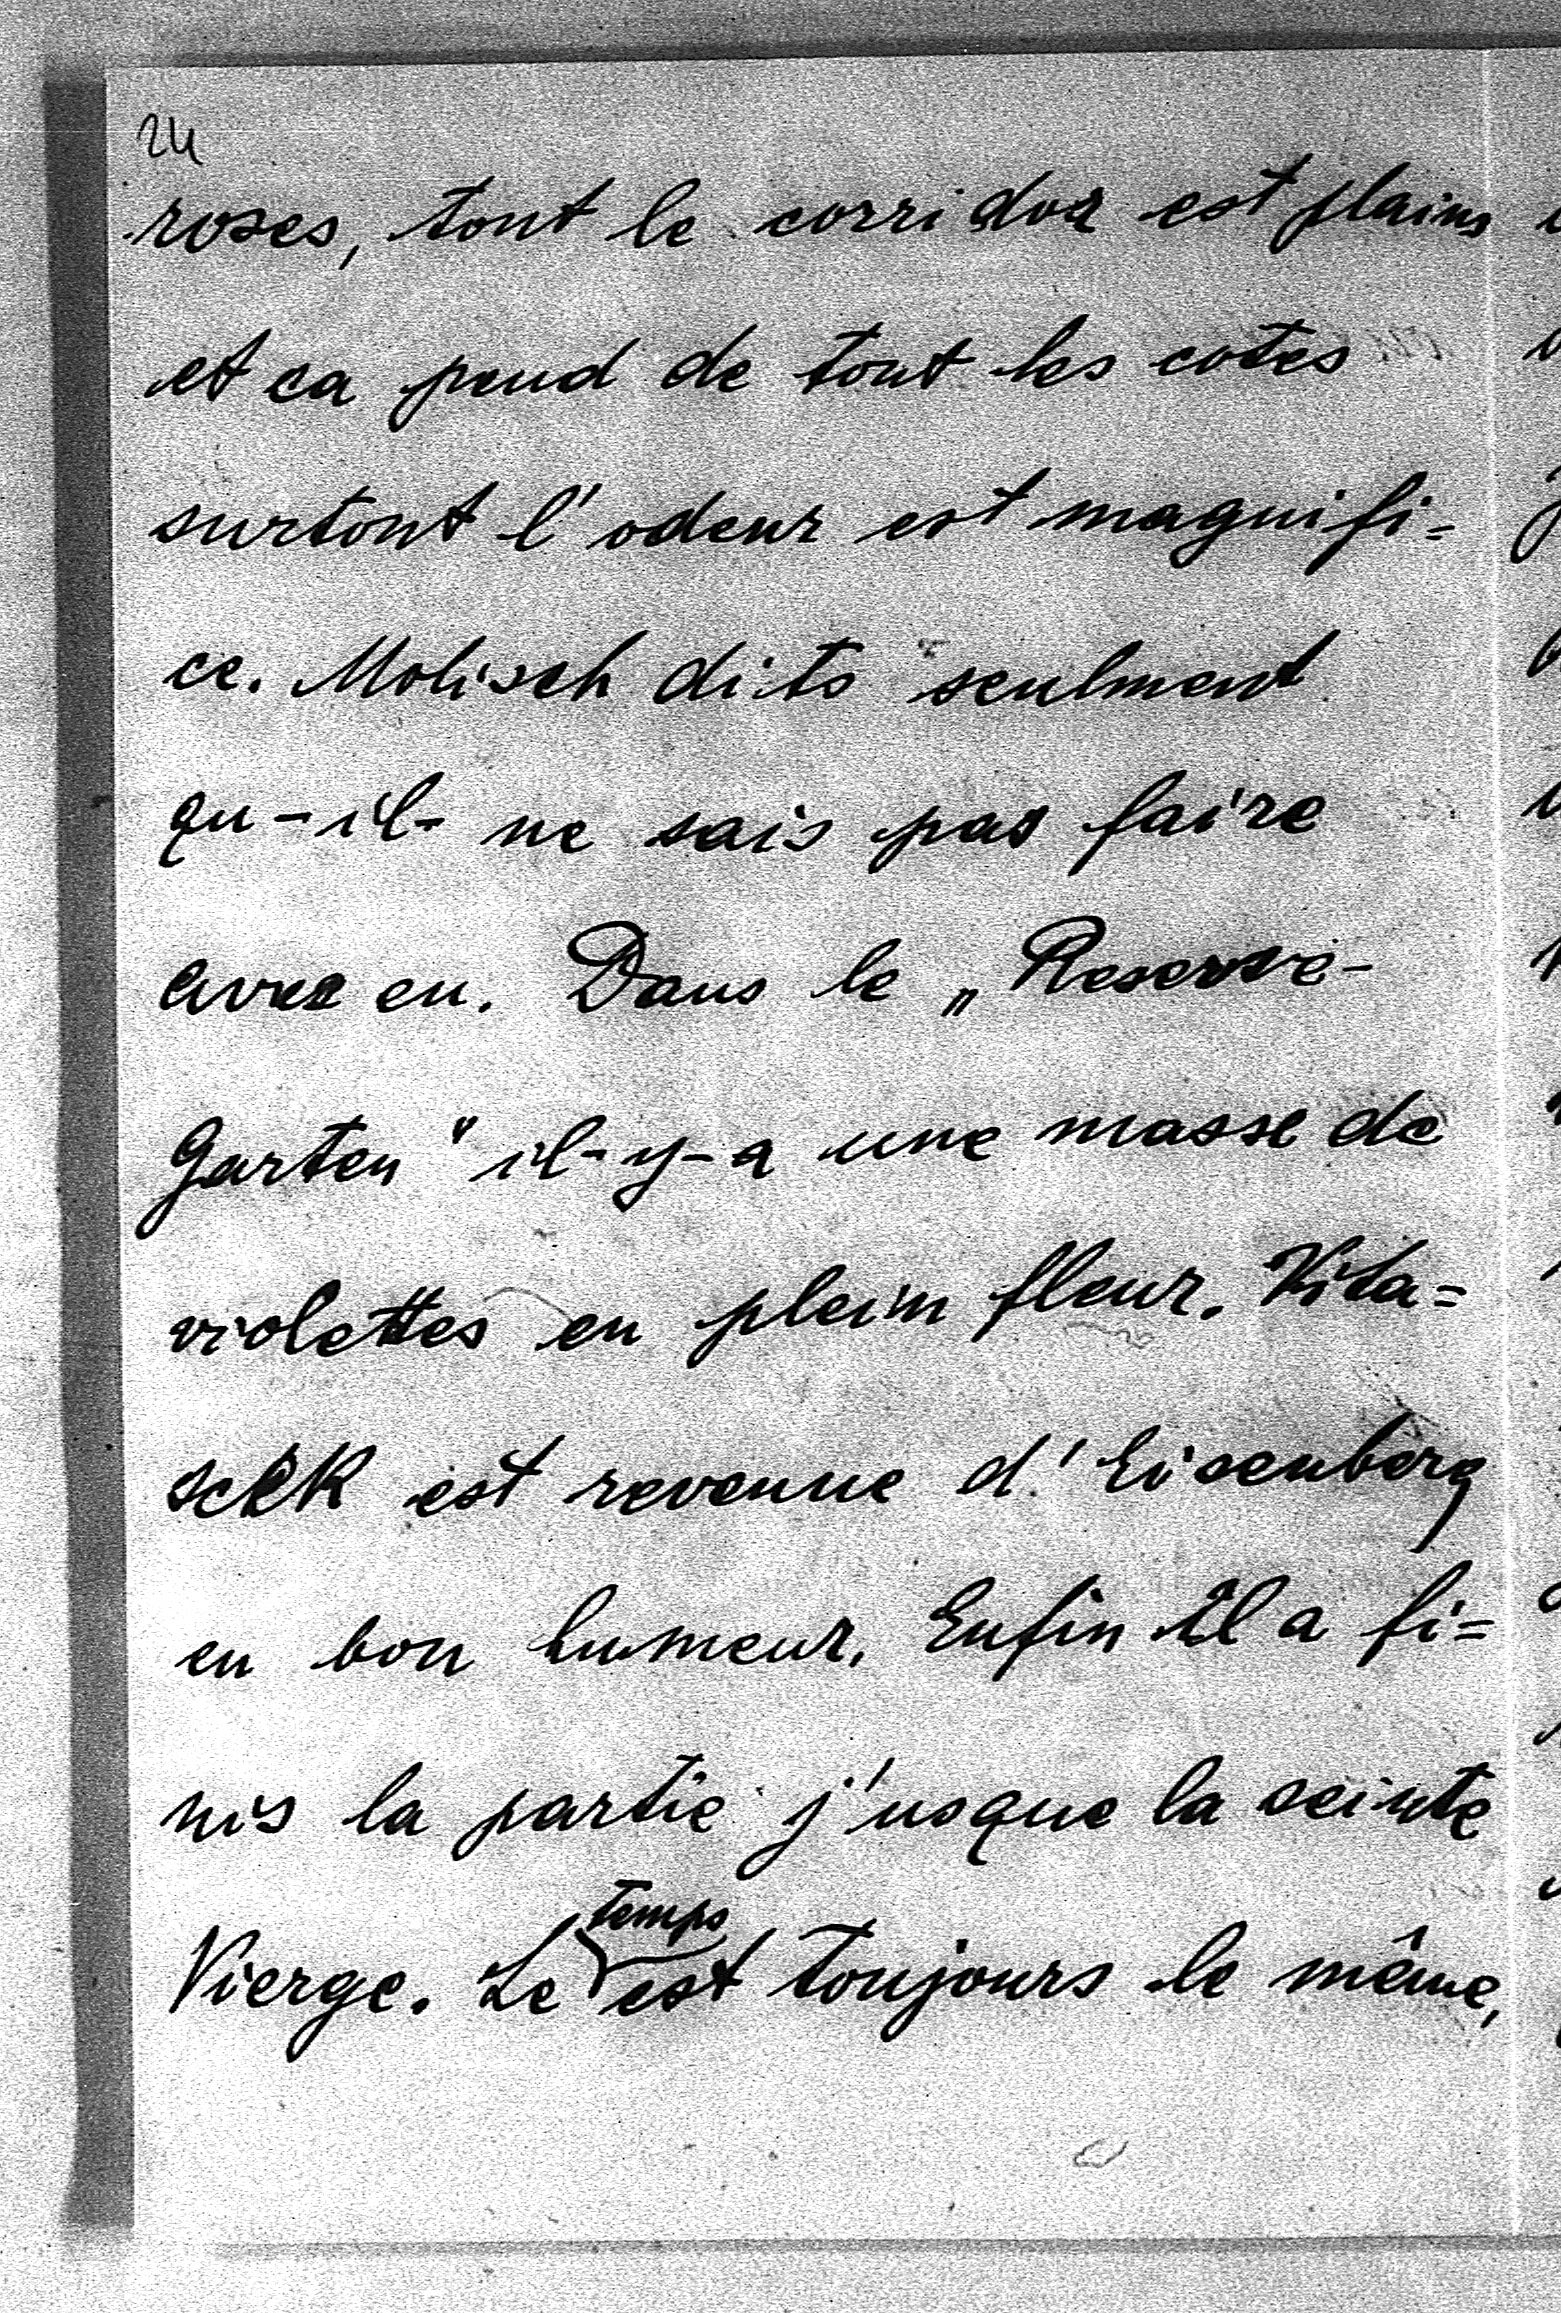 24
roses, tout le corridor est plains
et ca pend de tout les cotes
surtout l'odeur est magnifi=
ce. Molisch dits seulment
qu-il- ne sais pas faire
avez en. Dans le „Reserve-
Garten" il-y-a une masse de
violettes en pleim fleur. Vita=
sekk est revenue d'Eisenberg
en bon humeur. Enfin il a fi=
nis la partie j'usque la seinte
temps
Vierge. Le est toujours le même,